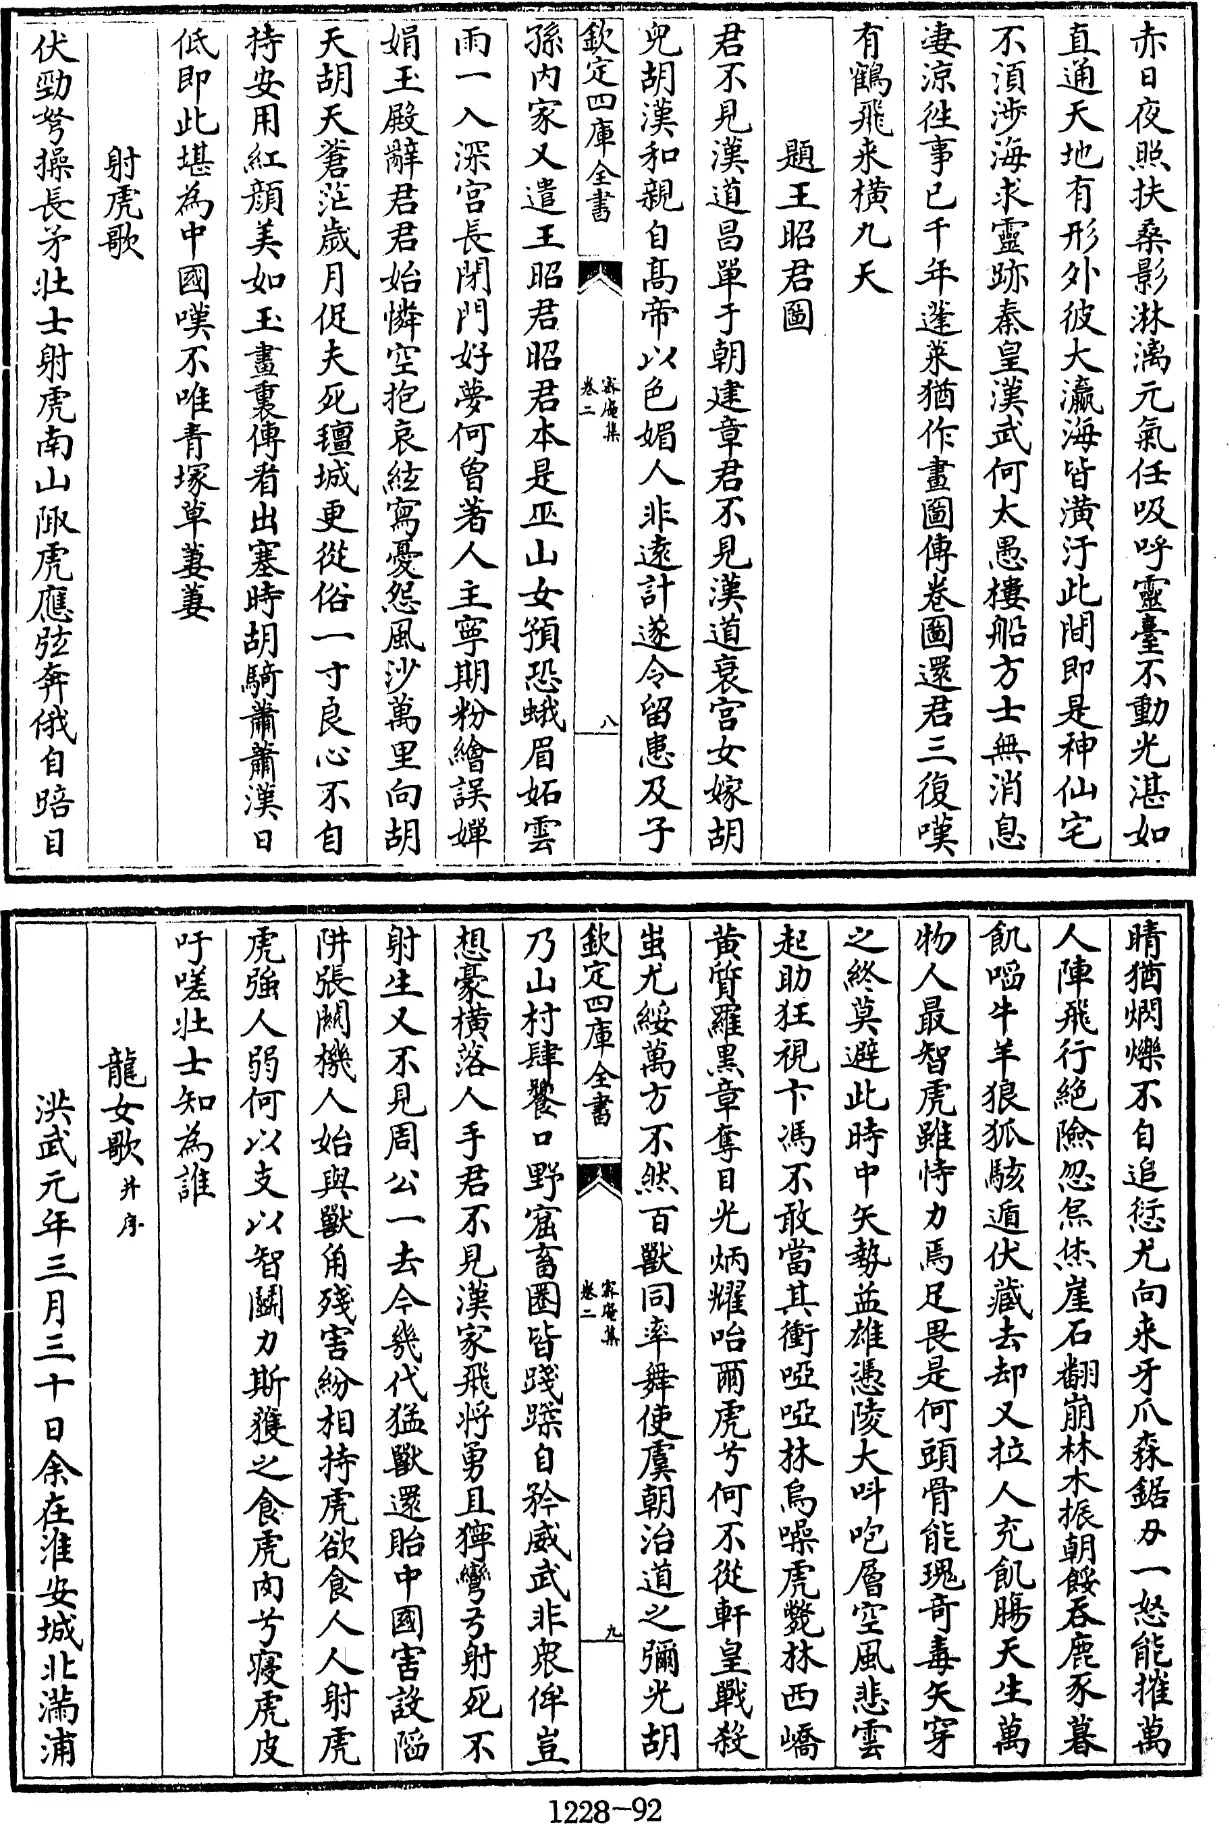 赤日夜照扶桑影淋漓元氣任吸呼靈臺不動光湛如
直通天地有形外彼大瀛海皆潢汙此間即是神仙宅
不須渉海求靈跡秦皇漢武何太愚樓船方士無消息
凄涼徃事已千年蓬萊猶作畫圖傳卷圖還君三復嘆
有鶴飛来横九天
題王昭君圖
君不見漢道昌單于朝建章君不見漢道衰宫女嫁胡
兒胡漢和親自髙帝以色媚人非逺計遂令留患及子
欽定四庫全書
卷二
八
孫内家又遣王昭君昭君本是巫山女預恐蛾眉妬雲
雨一入深宫長閉門好夢何曾著人主寧期粉繪誤嬋
娟玉殿辭君君始憐空抱哀絃寫憂怨風沙萬里向胡
天胡天蒼茫歲月促夫死氊城更從俗一寸良心不自
持安用紅顔美如玉畫裏傳看出塞時胡騎蕭蕭漢日
低即此堪為中國嘆不唯青塚草萋萋
射虎歌
伏勁弩操長矛壯士射虎南山陬虎應弦奔俄自踣目
睛猶爓爍不自追愆尤向来牙爪森鋸刃一怒能摧萬
人陣飛行絶險忽焂崖石翻崩林木振朝餒吞鹿豕暮
飢㗖牛羊狼狐駭遁伏藏去却又拉人充飢腸天生萬
物人最智虎雖恃力焉足畏是何頭骨能瑰竒毒矢穿
之終莫避此時中矢勢益雄憑陵大呌咆層空風悲雲
起助狂視卞馮不敢當其衝啞啞林烏噪虎斃林西嶠
黄質羅黒章奪目光炳耀咍爾虎兮何不從軒皇戰殺
蚩尤綏萬方不然百獸同率舞使虞朝治道之彌光胡
欽定四庫全書
卷二
九
乃山村肆饕口野窟畜圏皆踐蹂自矜威武非衆侔豈
想豪横落人手君不見漢家飛將勇且獰彎弓射死不
射生又不見周公一去今幾代猛獸還貽中國害設䧟
阱張闗機人始與獸角殘害紛相持虎欲食人人射虎
虎強人弱何以支以智鬭力斯獲之食虎肉兮寢虎皮
吁嗟壯士知為誰
龍女歌并序
洪武元年三月三十日余在淮安城北滿浦
1228-92